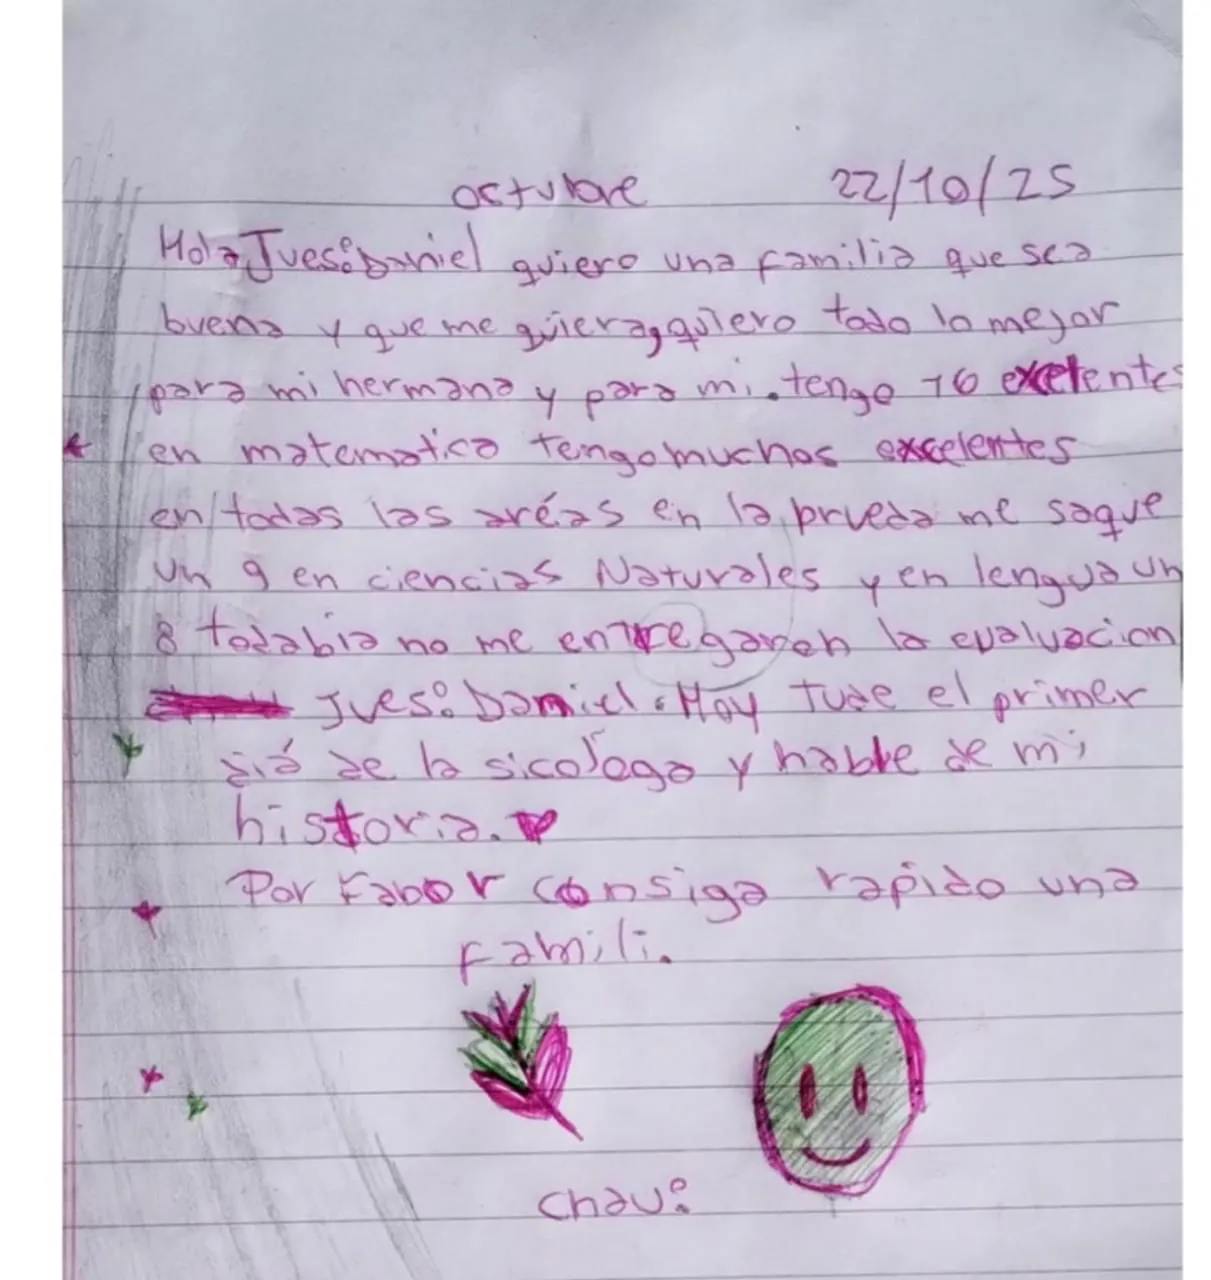 octubre 22/10/25
Hola Jues: Daniel quiero una familia que sea
buena y que me quiera, quiero todo lo mejor
para mi hermana y para mi. tengo 16 exelentes
en matematica tengo muchos excelentes
en todas las aréas en la prueda me saque
un 9 en ciencias Naturales y en lengua un
8 todabia no me entregaron la evaluacion
Jues: Daniel. Hoy tude el primer
diá de la sicologa y hable de mi
historia.
Por Fabor consiga rapido una
Famili.
chau: